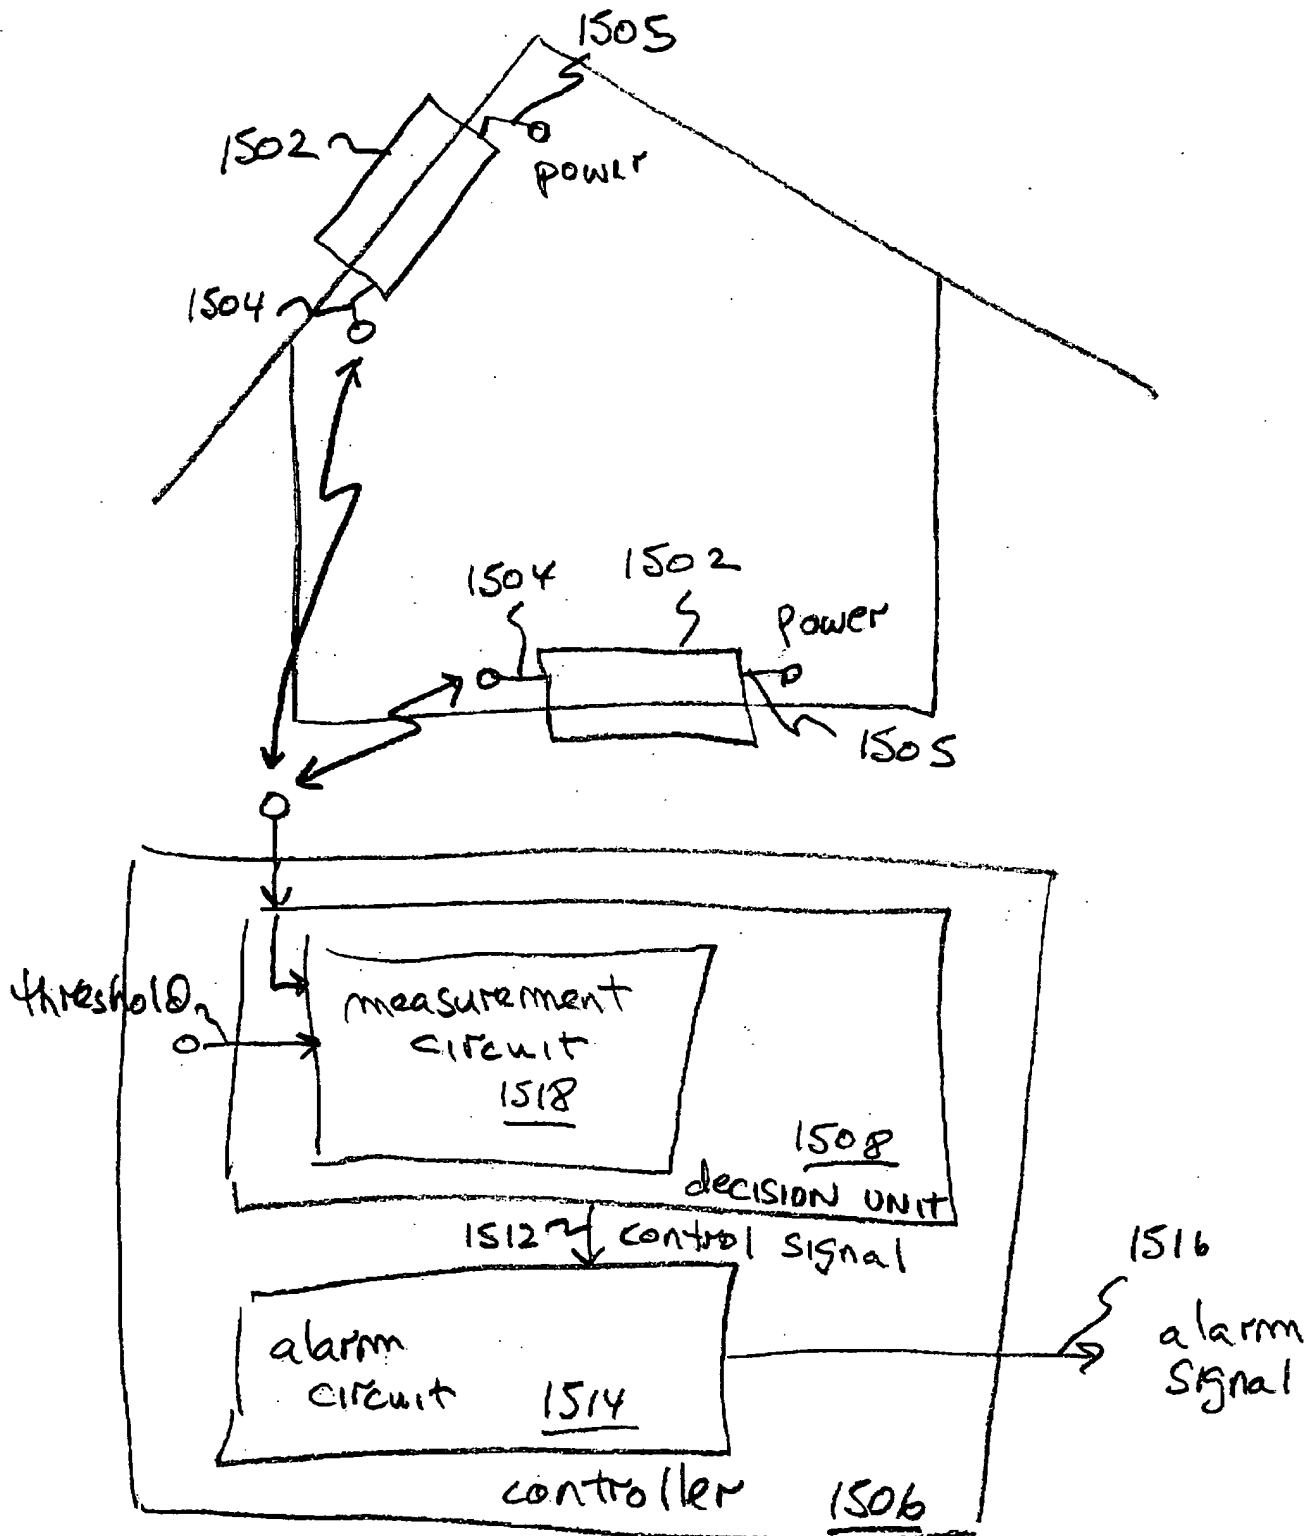 1505
1502
power
1504
1504
1502
power
1505
threshold
measurement
circuit
1518
1508
decision unit
1512
control signal
1516
alarm
signal
alarm
circuit
1514
controller
1506